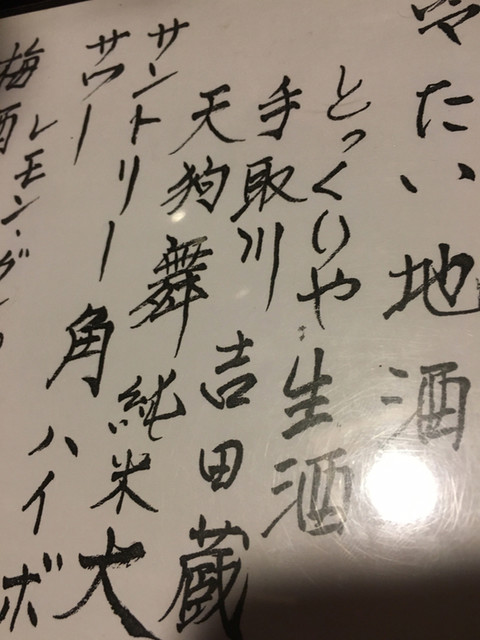 冷たい地酒
とっくりや生酒
手取川 吉田蔵
天狗舞 純米大
サントリー角ハイボ
サワー レモン・グ
梅酒